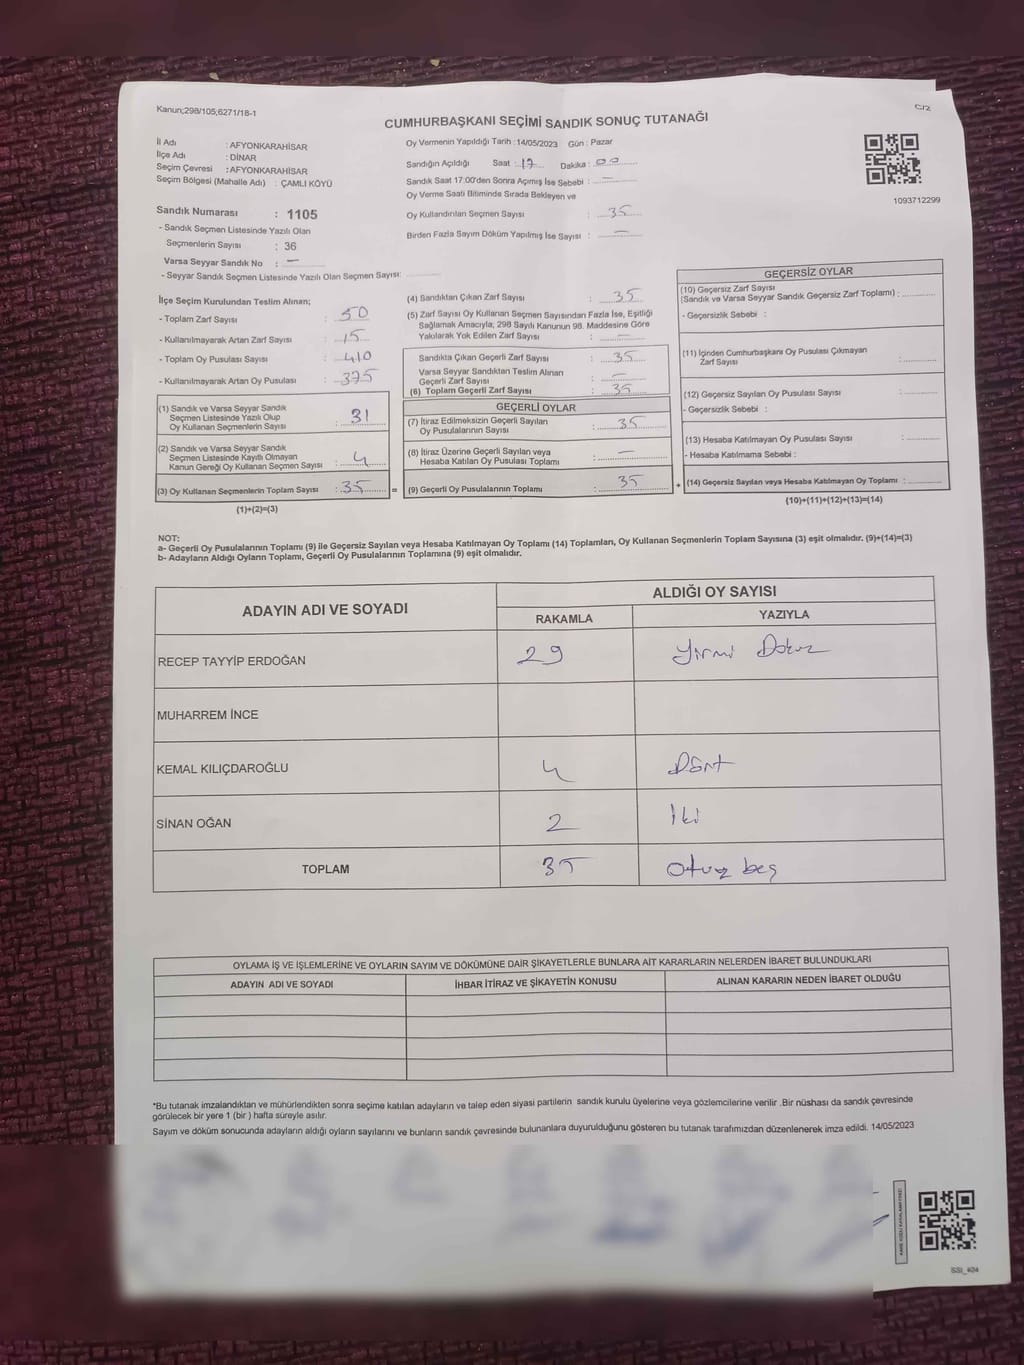 Kanun;298/105;6271/18-1
C/2
CUMHURBAŞKANI SEÇİMİ SANDIK SONUÇ TUTANAĞI
İl Adı : AFYONKARAHİSAR
İlçe Adı : DİNAR
Seçim Çevresi : AFYONKARAHİSAR
Seçim Bölgesi (Mahalle Adı) : ÇAMLI KÖYÜ
Sandık Numarası : 1105
- Sandık Seçmen Listesinde Yazılı Olan
Seçmenlerin Sayısı : 36
Varsa Seyyar Sandık No : —
- Seyyar Sandık Seçmen Listesinde Yazılı Olan Seçmen Sayısı:
Oy Vermenin Yapıldığı Tarih : 14/05/2023 Gün : Pazar
Sandığın Açıldığı Saat : 17 Dakika : 00
Sandık Saat 17:00'den Sonra Açımış İse Sebebi : —
Oy Verme Saati Bitiminde Sırada Bekleyen ve
Oy Kullandırılan Seçmen Sayısı : 35
Birden Fazla Sayım Döküm Yapılmış İse Sayısı : —
1093712299
İlçe Seçim Kurulundan Teslim Alınan;
- Toplam Zarf Sayısı : 50
- Kullanılmayarak Artan Zarf Sayısı : 15
- Toplam Oy Pusulası Sayısı : 410
- Kullanılmayarak Artan Oy Pusulası : 375
(1) Sandık ve Varsa Seyyar Sandık
Seçmen Listesinde Yazılı Olup
Oy Kullanan Seçmenlerin Sayısı : 31
(2) Sandık ve Varsa Seyyar Sandık
Seçmen Listesinde Kayıtlı Olmayan
Kanun Gereği Oy Kullanan Seçmen Sayısı : 4
(3) Oy Kullanan Seçmenlerin Toplam Sayısı : 35 =
(1)+(2)=(3)
(4) Sandıktan Çıkan Zarf Sayısı : 35
(5) Zarf Sayısı Oy Kullanan Seçmen Sayısından Fazla İse, Eşitliği
Sağlamak Amacıyla; 298 Sayılı Kanunun 98. Maddesine Göre
Yakılarak Yok Edilen Zarf Sayısı : —
Sandıkta Çıkan Geçerli Zarf Sayısı : 35
Varsa Seyyar Sandıktan Teslim Alınan
Geçerli Zarf Sayısı : —
(6) Toplam Geçerli Zarf Sayısı : 35
GEÇERLİ OYLAR
(7) İtiraz Edilmeksizin Geçerli Sayılan
Oy Pusulalarının Sayısı : 35
(8) İtiraz Üzerine Geçerli Sayılan veya
Hesaba Katılan Oy Pusulası Toplamı : —
(9) Geçerli Oy Pusulalarının Toplamı : 35 +
GEÇERSİZ OYLAR
(10) Geçersiz Zarf Sayısı
(Sandık ve Varsa Seyyar Sandık Geçersiz Zarf Toplamı) :
- Geçersizlik Sebebi :
(11) İçinden Cumhurbaşkanı Oy Pusulası Çıkmayan
Zarf Sayısı :
(12) Geçersiz Sayılan Oy Pusulası Sayısı :
- Geçersizlik Sebebi :
(13) Hesaba Katılmayan Oy Pusulası Sayısı :
- Hesaba Katılmama Sebebi :
(14) Geçersiz Sayılan veya Hesaba Katılmayan Oy Toplamı :
(10)+(11)+(12)+(13)=(14)
NOT:
a- Geçerli Oy Pusulalarının Toplamı (9) ile Geçersiz Sayılan veya Hesaba Katılmayan Oy Toplamı (14) Toplamları, Oy Kullanan Seçmenlerin Toplam Sayısına (3) eşit olmalıdır. (9)+(14)=(3)
b- Adayların Aldığı Oyların Toplamı, Geçerli Oy Pusulalarının Toplamına (9) eşit olmalıdır.
ADAYIN ADI VE SOYADI
ALDIĞI OY SAYISI
RAKAMLA YAZIYLA
RECEP TAYYİP ERDOĞAN 29 Yirmi Dokuz
MUHARREM İNCE
KEMAL KILIÇDAROĞLU 4 Dört
SİNAN OĞAN 2 İki
TOPLAM 35 otuz beş
OYLAMA İŞ VE İŞLEMLERİNE VE OYLARIN SAYIM VE DÖKÜMÜNE DAİR ŞİKAYETLERLE BUNLARA AİT KARARLARIN NELERDEN İBARET BULUNDUKLARI
ADAYIN ADI VE SOYADI İHBAR İTİRAZ VE ŞİKAYETİN KONUSU ALINAN KARARIN NEDEN İBARET OLDUĞU
*Bu tutanak imzalandıktan ve mühürlendikten sonra seçime katılan adayların ve talep eden siyasi partilerin sandık kurulu üyelerine veya gözlemcilerine verilir .Bir nüshası da sandık çevresinde
görülecek bir yere 1 (bir ) hafta süreyle asılır.
Sayım ve döküm sonucunda adayların aldığı oyların sayılarını ve bunların sandık çevresinde bulunanlara duyurulduğunu gösteren bu tutanak tarafımızdan düzenlenerek imza edildi. 14/05/2023